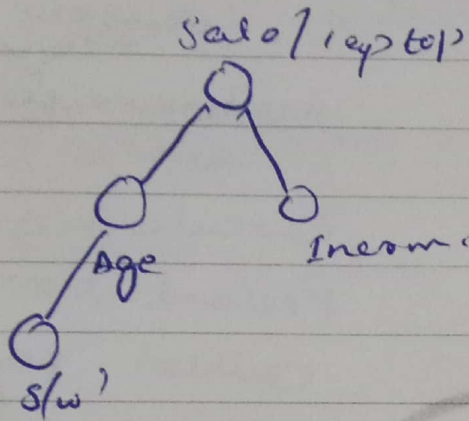 Sale / laptop
Age
Income
S/w